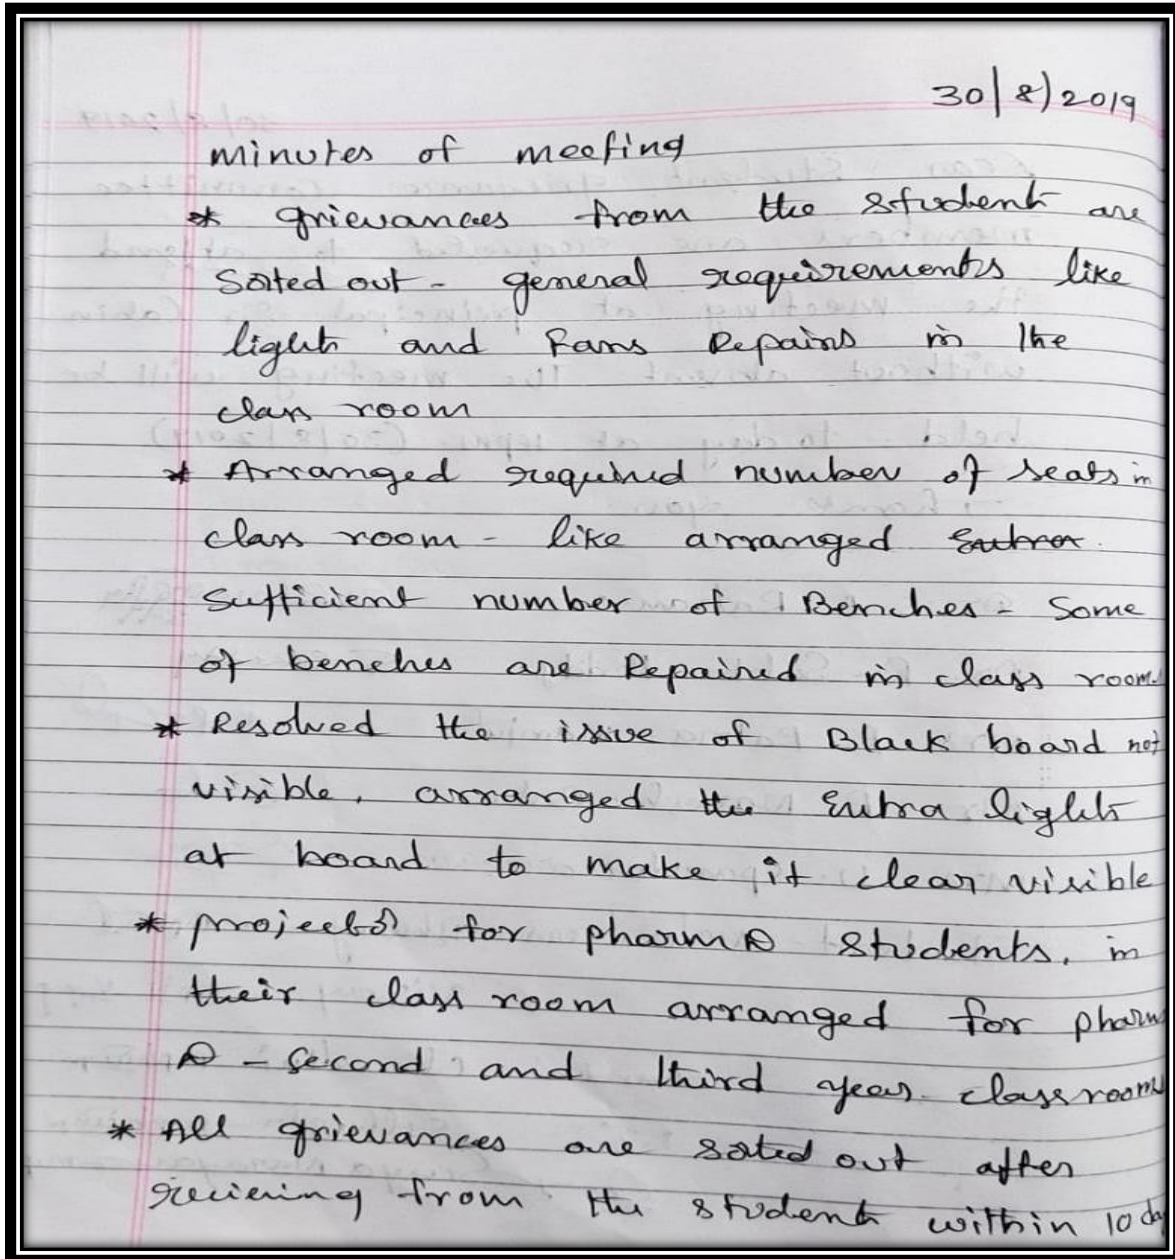 30/8/2019
minutes of meeting
* grievances from the student are
sorted out - general requirements like
light and Fans Repairs in the
class room
* Arranged required number of seats in
class room - like arranged Extra
sufficient number of Benches - Some
of benches are Repaired in class room.
* Resolved the issue of Black board not
visible, arranged the Extra lights
at board to make it clear visible
* projects for pharm D students, in
their class room arranged for pharm
D - Second and third year classroom
* All grievances are sorted out after
from the student within 10